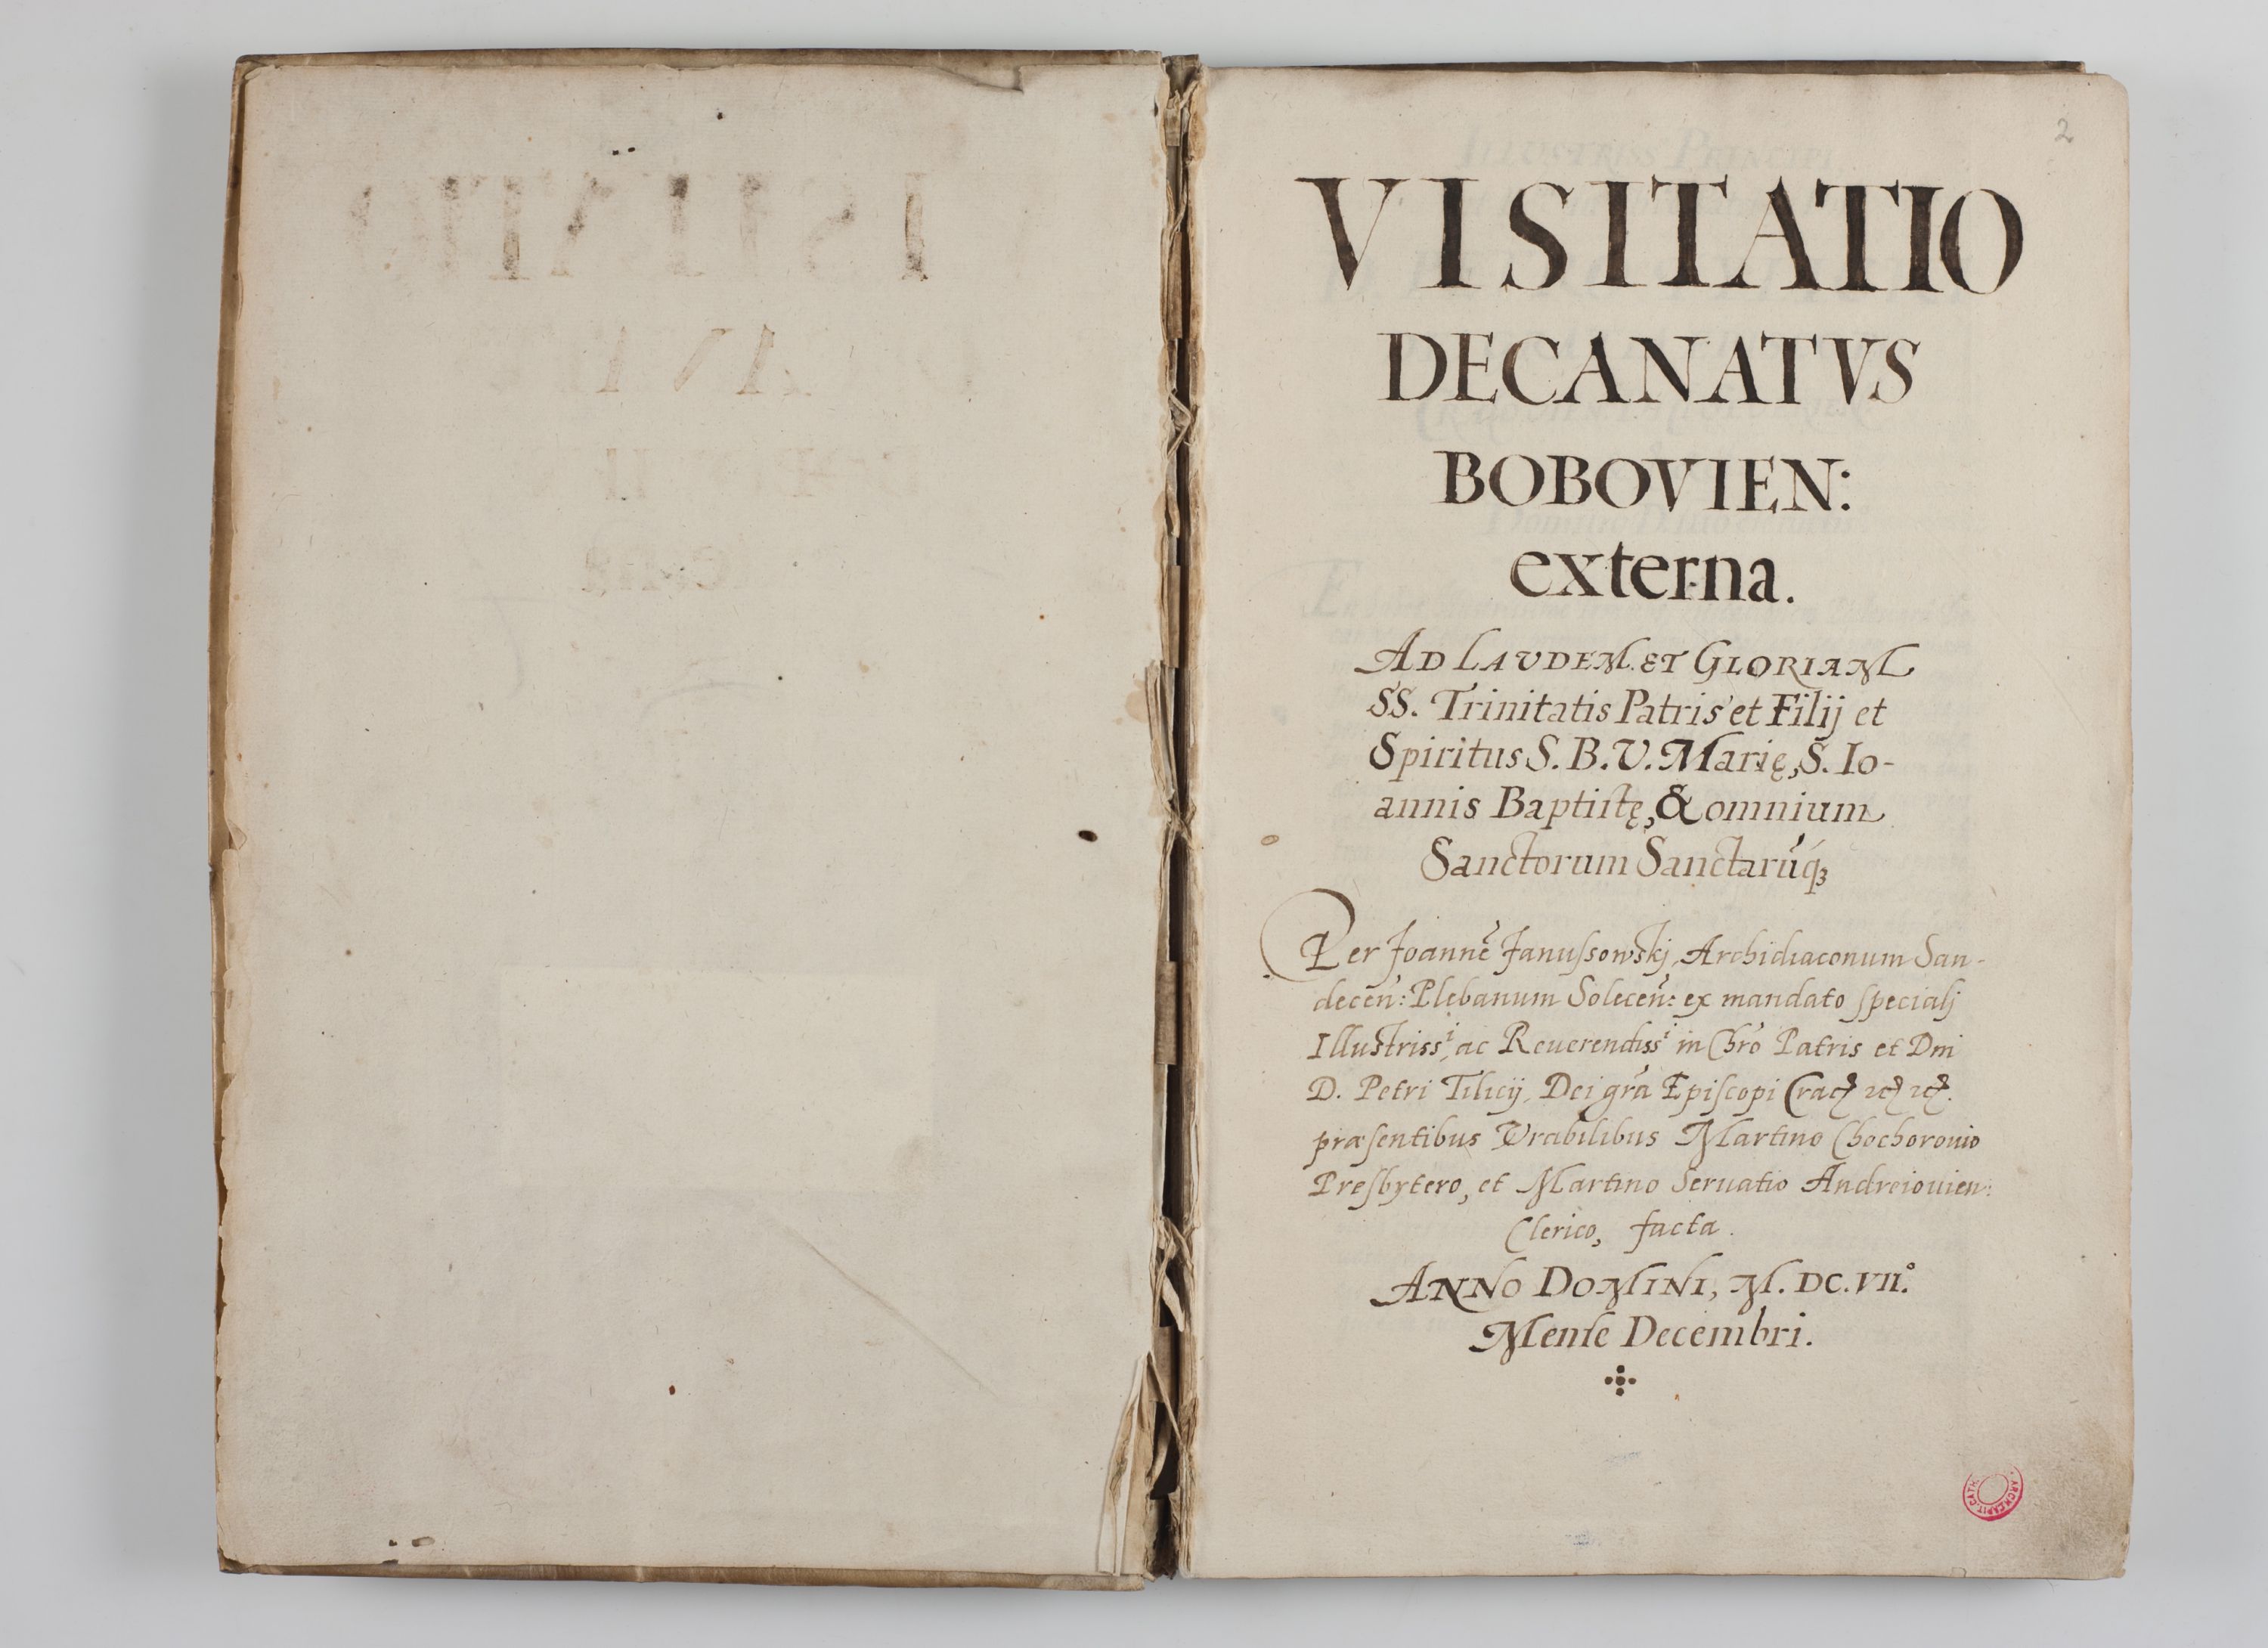 2
VISITATIO
DECANATVS
BOBOVIEN:
externa.
AD LAVDEM ET GLORIAM
SS. Trinitatis Patris et Filij et
Spiritus S. B. V. Marię, S. Io-
annis Baptistę, & omnium
Sanctorum Sanctarúq́ꝫ
Per Joannẽ Januſsowskj, Archidiaconum San-
decen̄: Plebanum Solecen̄: ex mandato ſpecialj
Illustrissⁱ, ac Reuerendissⁱ in Chr̃o Patris et Dni
D. Petri Tilicij, Dei grã Epiſcopi Crac̃ ꝛc̃ ꝛc̃.
præſentibus Vrabilibus Martino Chochorouio
Preſbytero, et Martino Seruatio Andreiouien:
Clerico, facta.
ANNO DOMINI, M. DC. VII.°
Menſe Decembri.
ARCH. CAPIT. CATH.